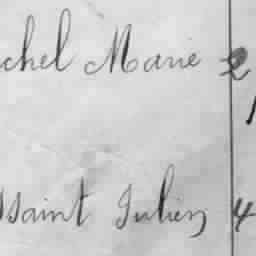 chel Marie 2
ssaint Julien 4